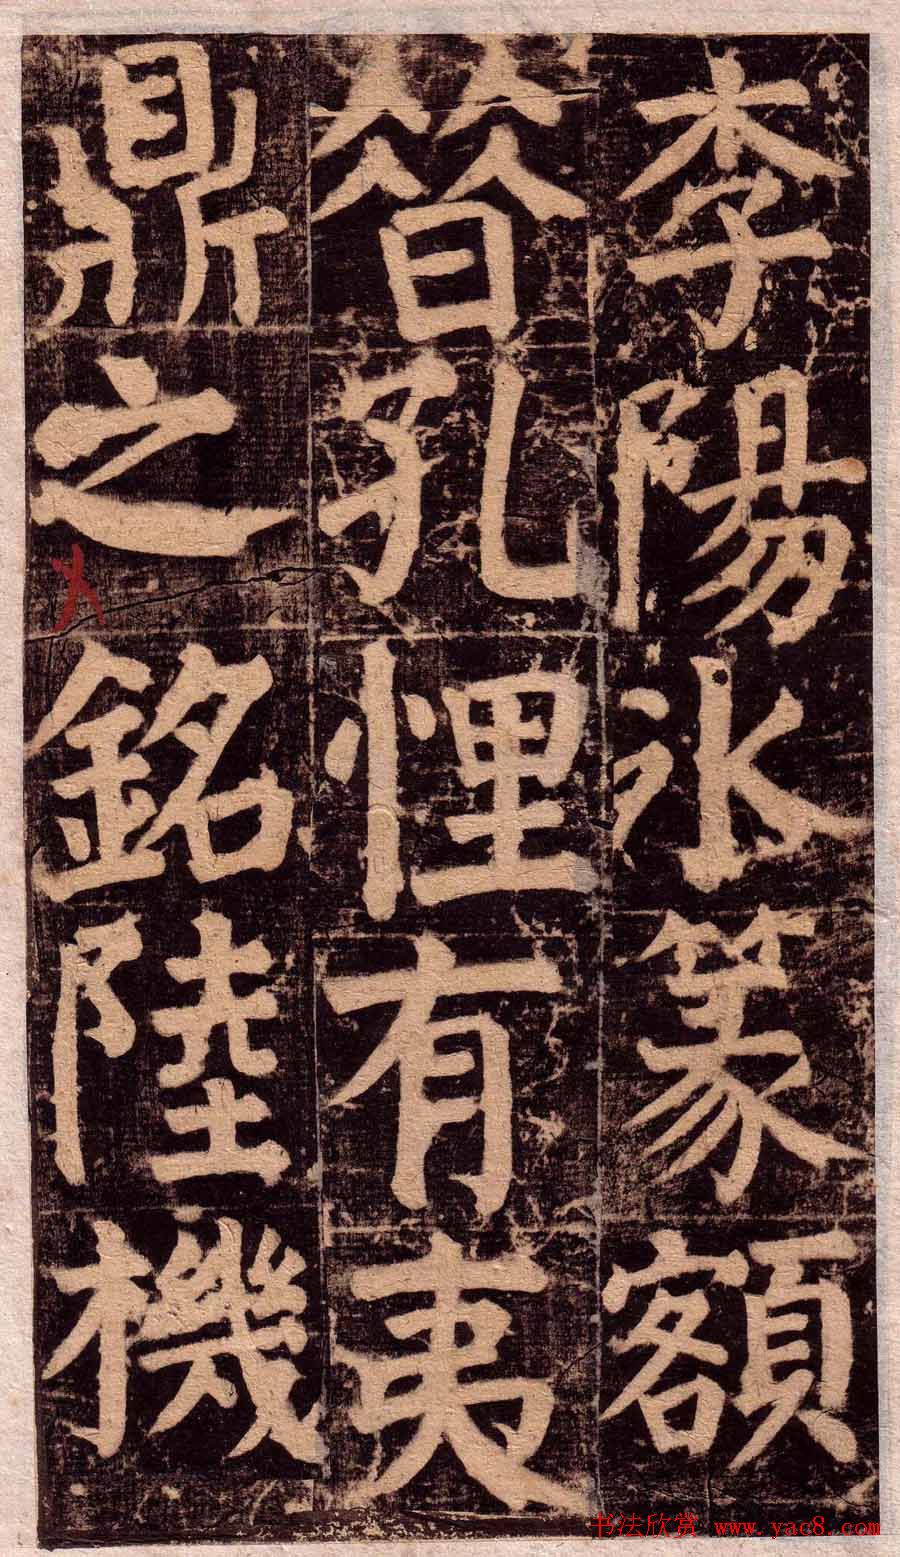 李陽氷篆額
㫺孔悝有夷
鼎之銘陸機
书法欣赏 www.yac8.com